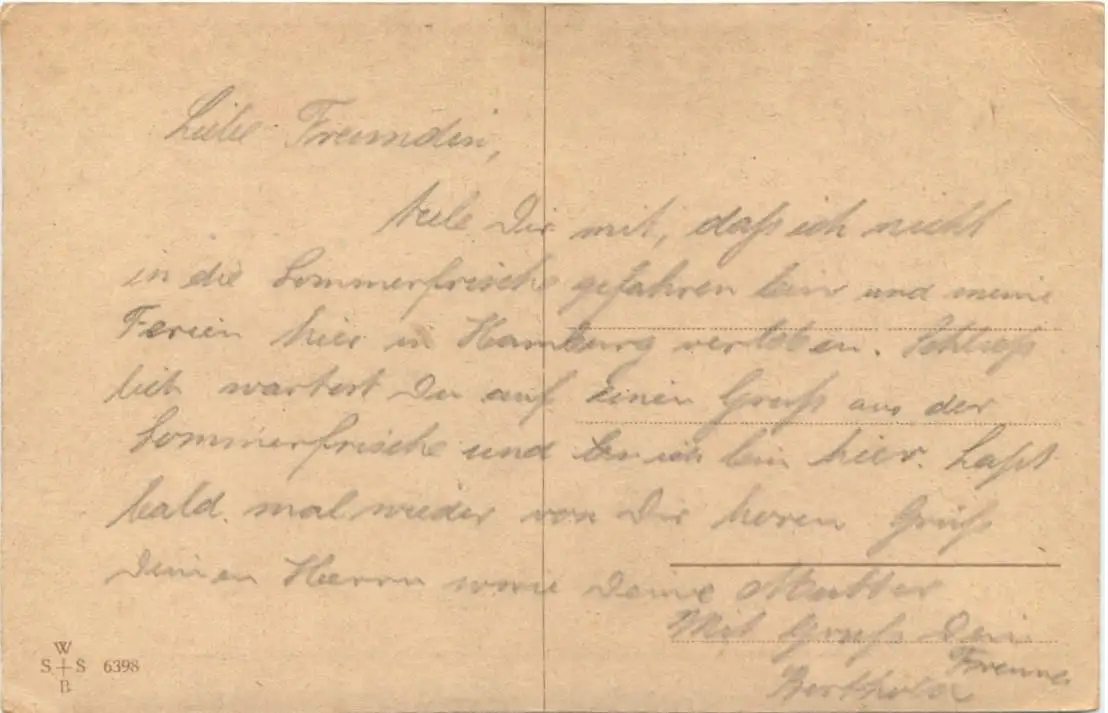 Liebe Freundin,
teile Dir mit, daß ich nicht
in die Sommerfrische gefahren bin und meine
Ferien hier in Hamburg verleben. Schließ
lich wartest Du auf einen Gruß aus der
Sommerfrische und ich bin hier. Laßt
bald mal wieder von Dir hören Grüß
Deinen Herrn sowie Deine Mutter
Mit Gruß Dein
Freund
Berthold
W
S + S 6398
B